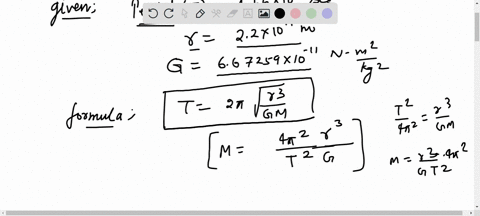 given:
r = 2.2×10 m
G = 6.67259×10⁻¹¹ N-m²/kg²
formula; T = 2π √(r3/GM)
[M = 4π² r³/T² G]
T²/4π² = r³/GM
M = r³·4π²/G T²